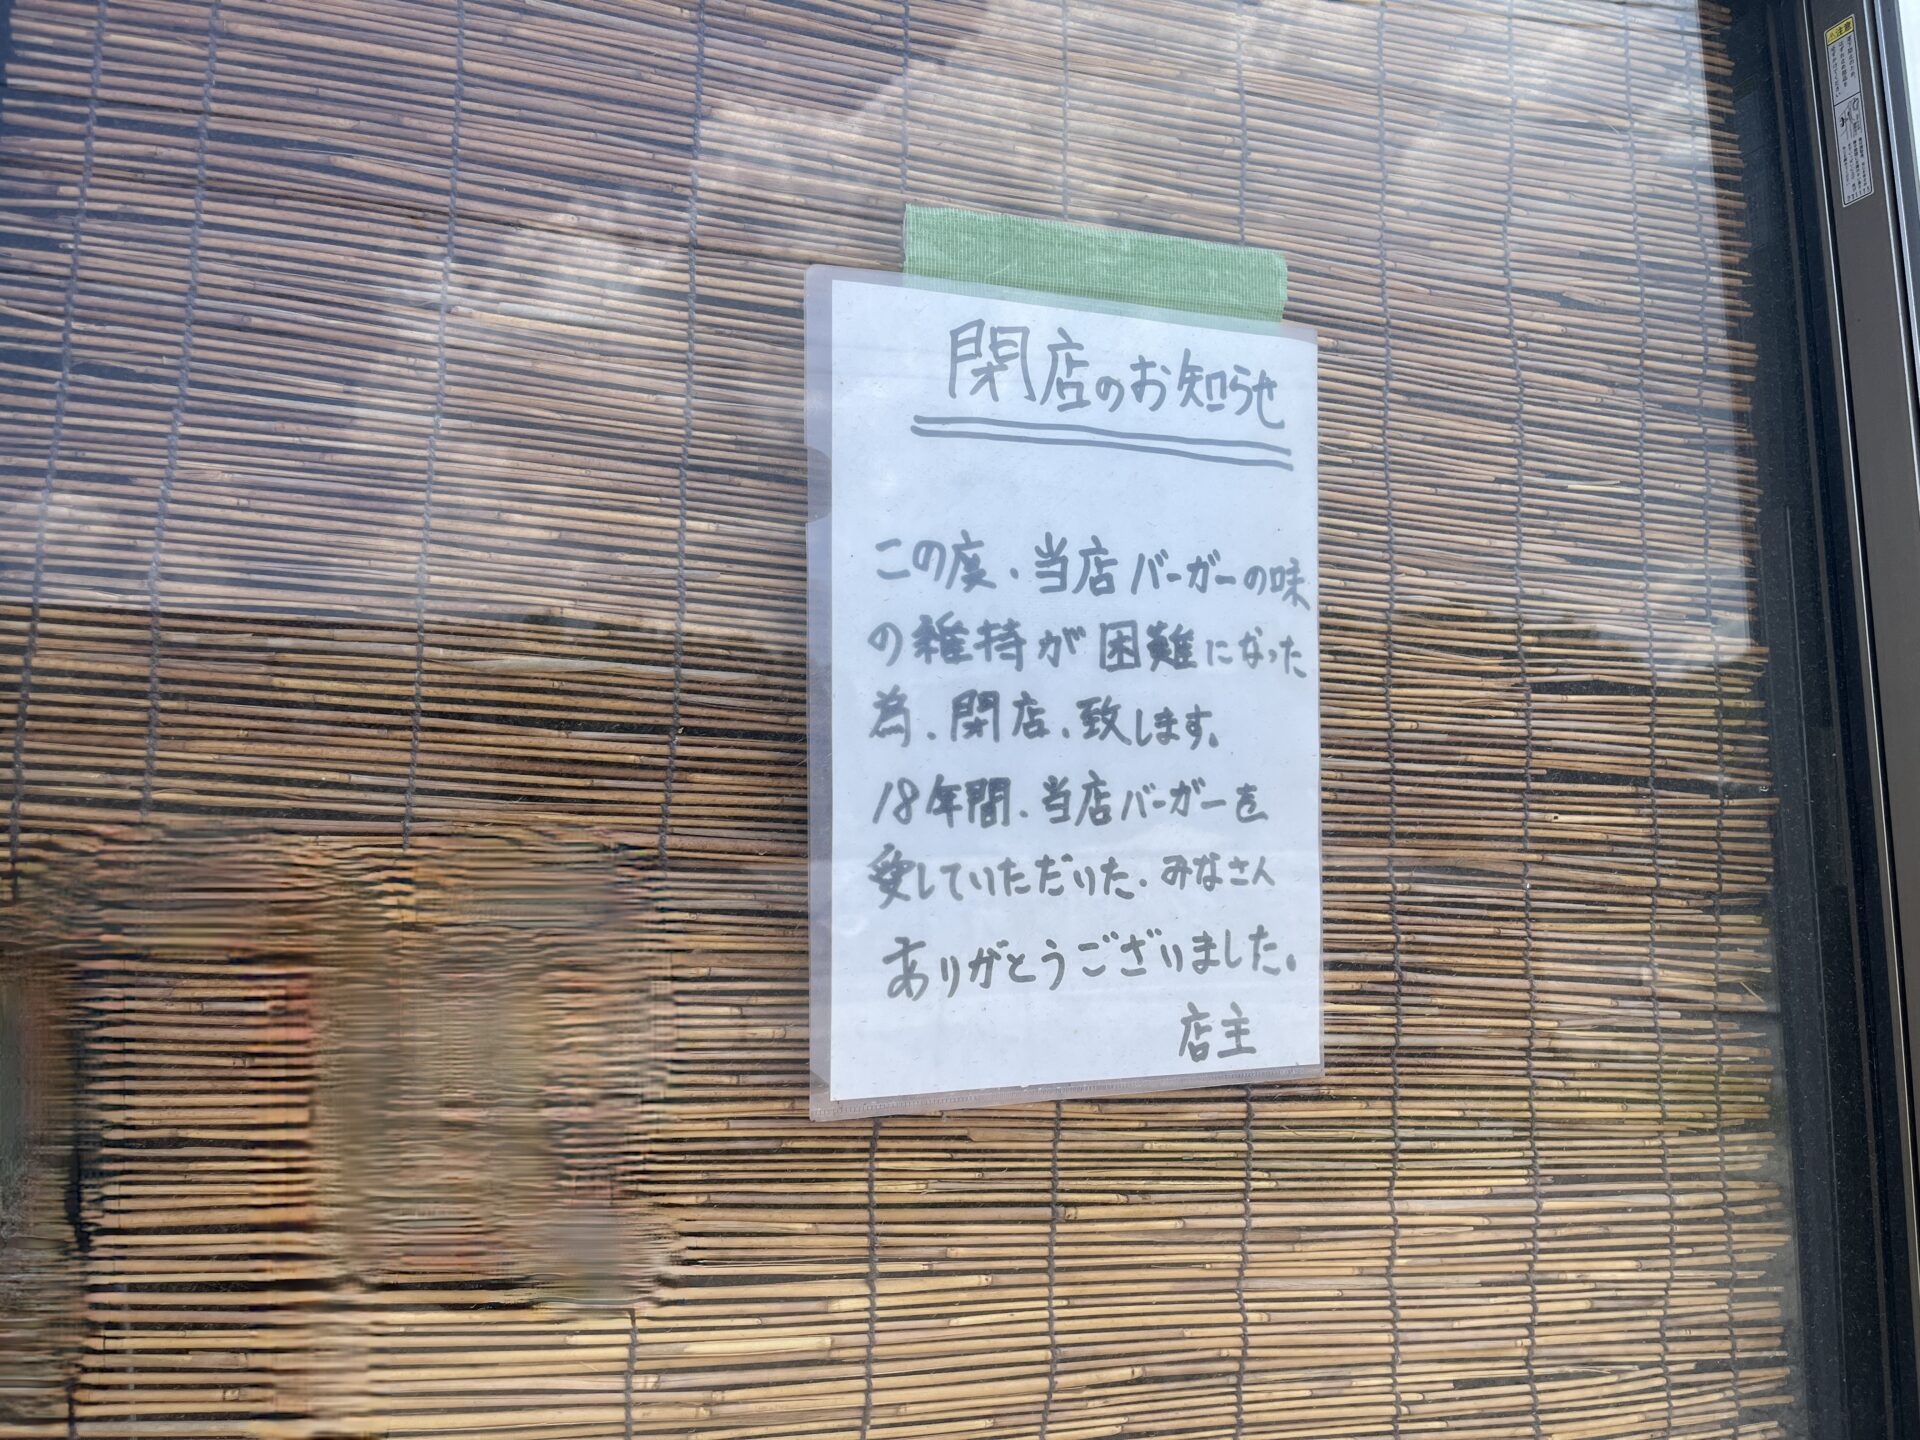 閉店のお知らせ
この度、当店バーガーの味
の維持が困難になった
為、閉店、致します。
18年間、当店バーガーを
愛していただいた、みなさん
ありがとうございました。
店主